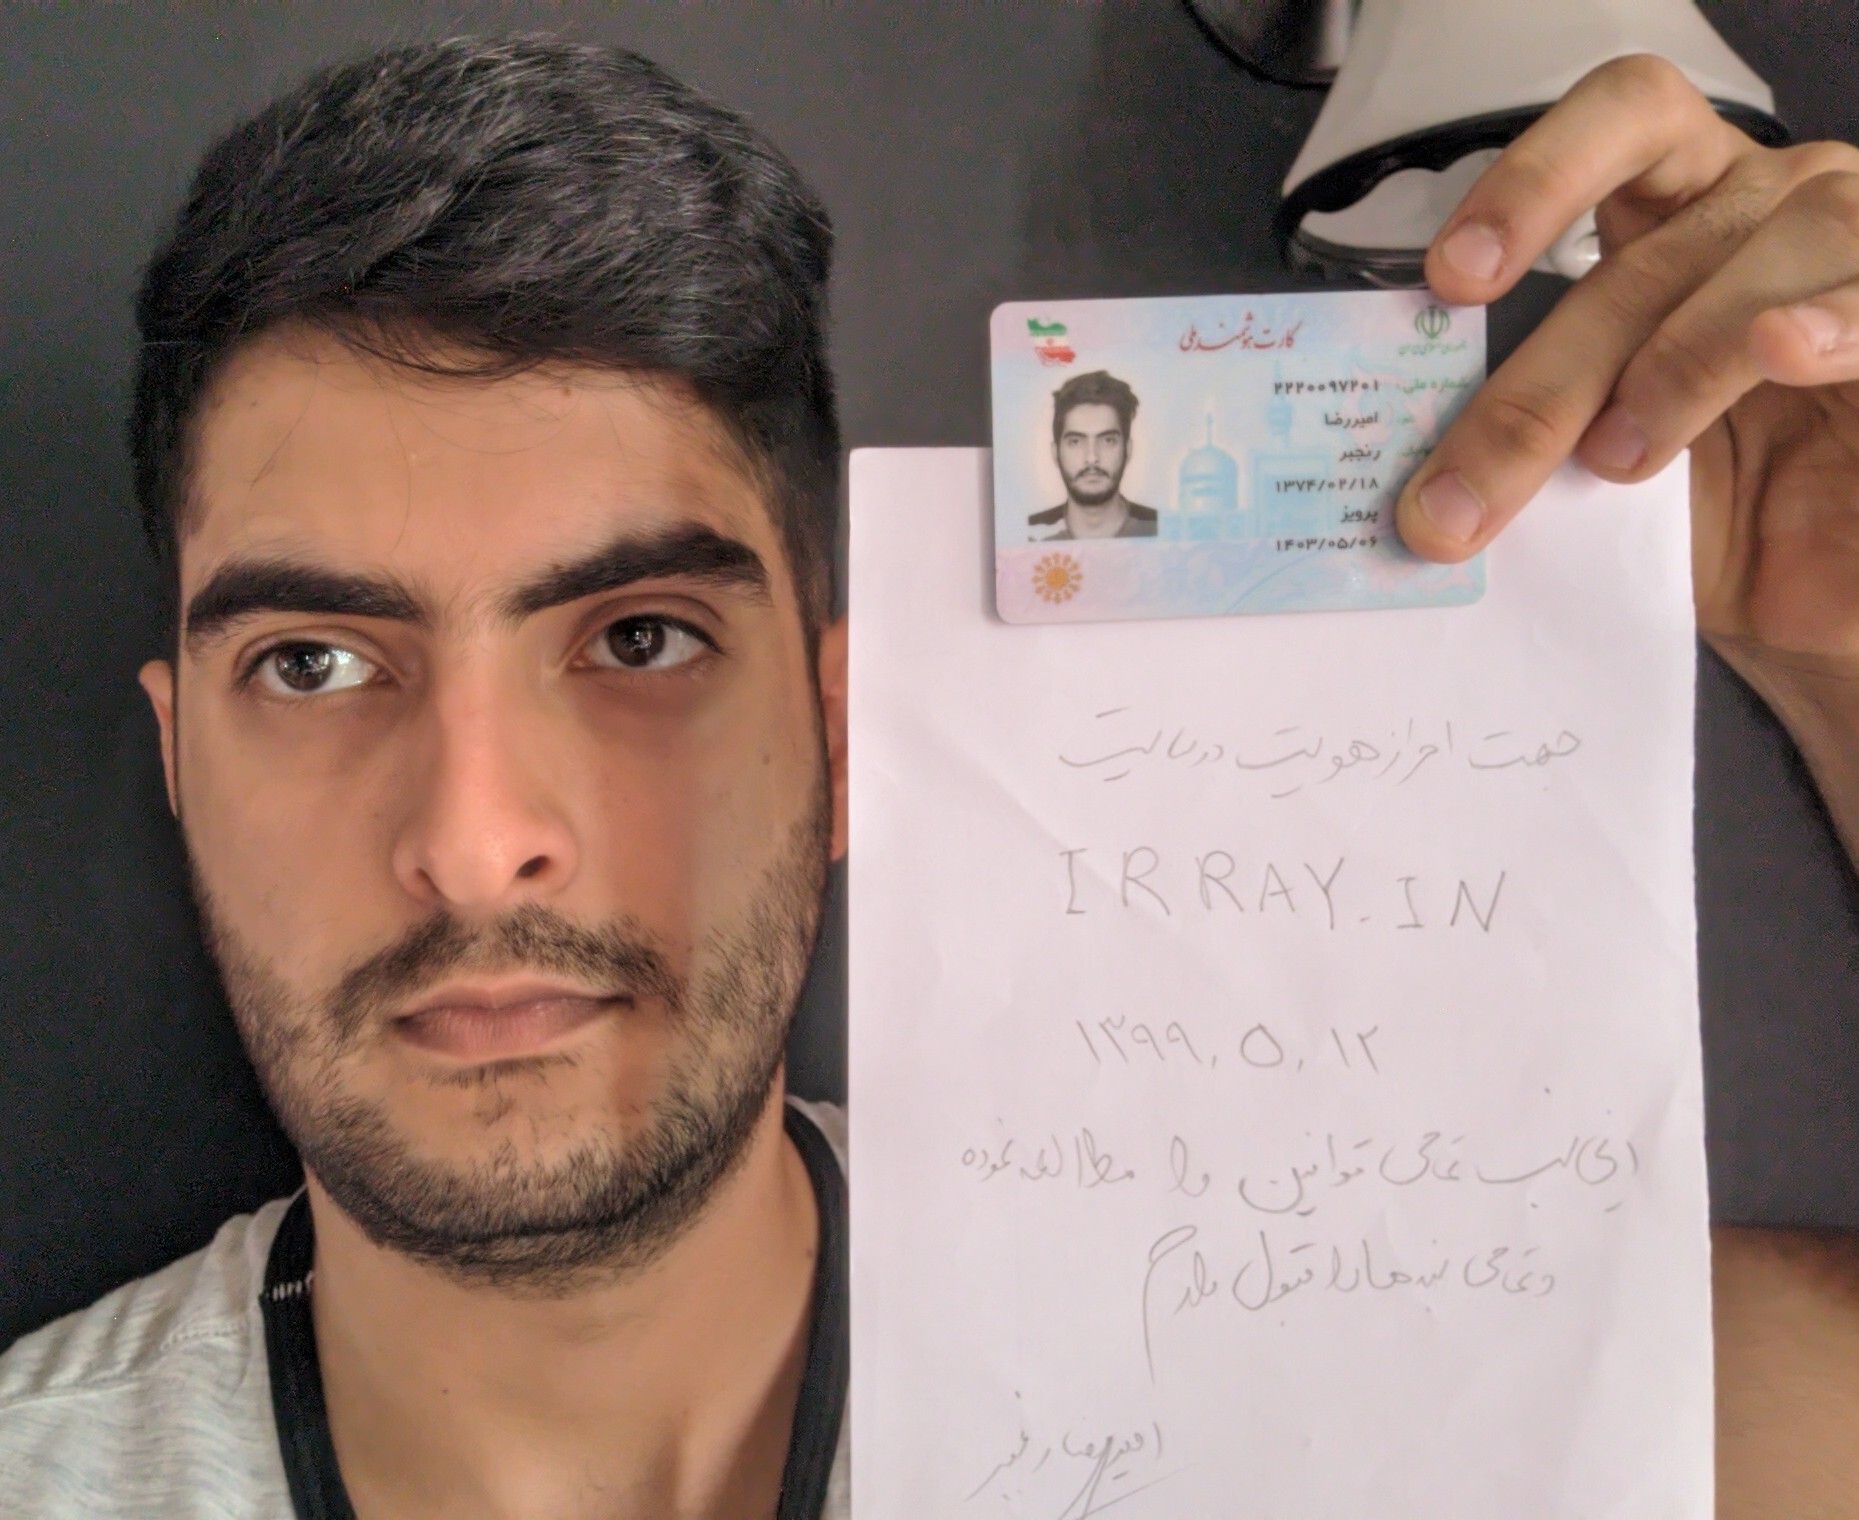 کارت هوشمند ملی
جمهوری اسلامی ایران
شماره ملی: ۲۲۲۰۰۹۷۲۰۱
امیررضا
رنجبر
۱۳۷۴/۰۲/۱۸
پرویز
۱۴۰۳/۰۵/۰۶
جهت احراز هویت در سایت
IRRAY.IN
۱۳۹۹.۵.۱۲
اینجانب تمامی قوانین را مطالعه نموده
و تمامی بندها را قبول دارم
امیررضا رنجبر